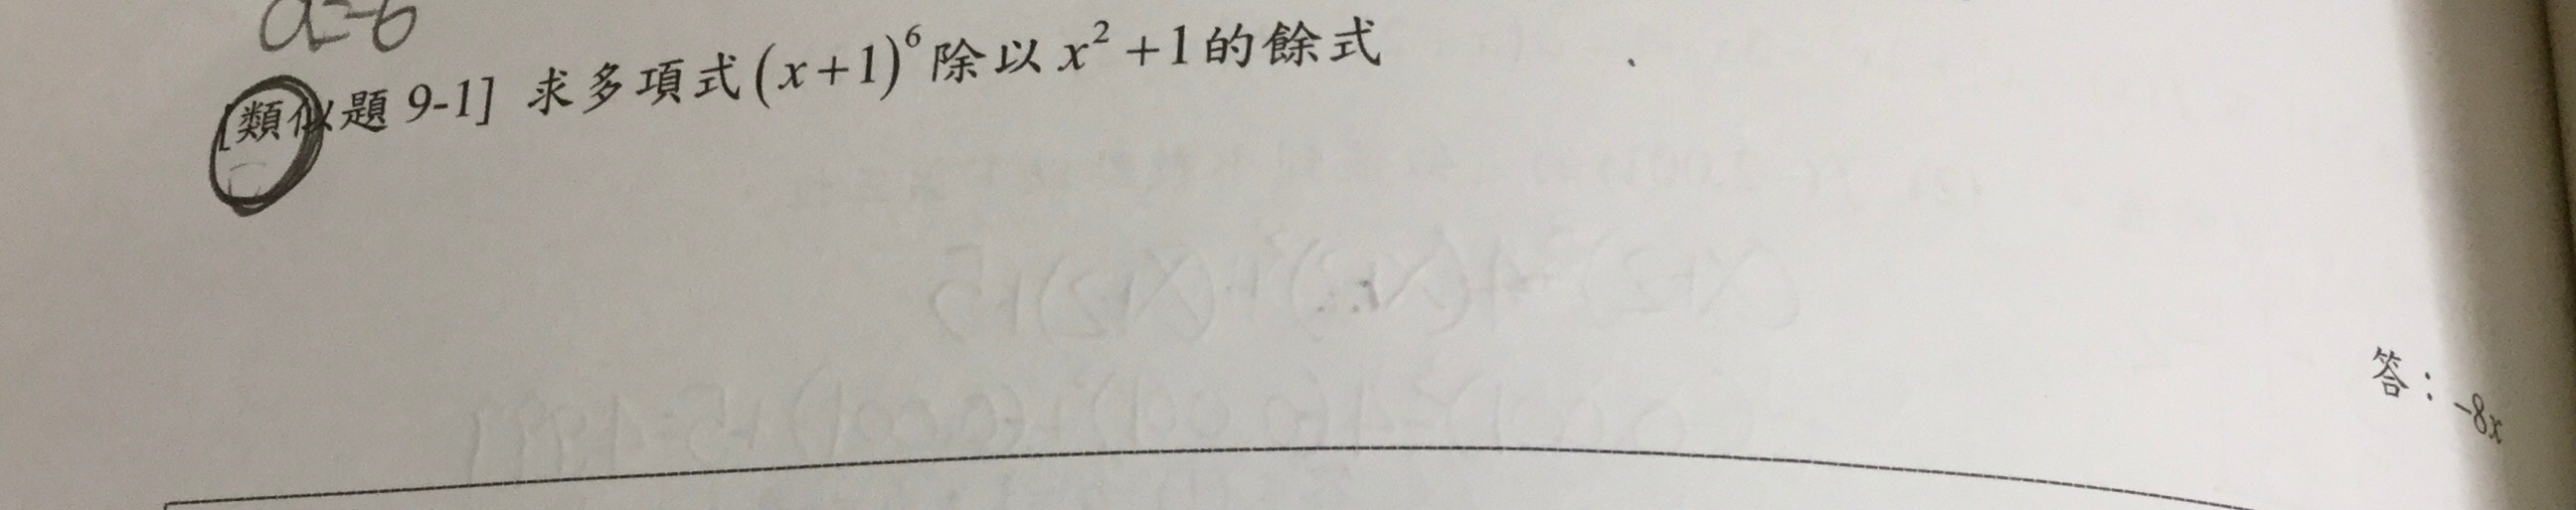 a=-6
[類似題 9-1] 求多項式(x+1)⁶除以x²+1的餘式
答：-8x